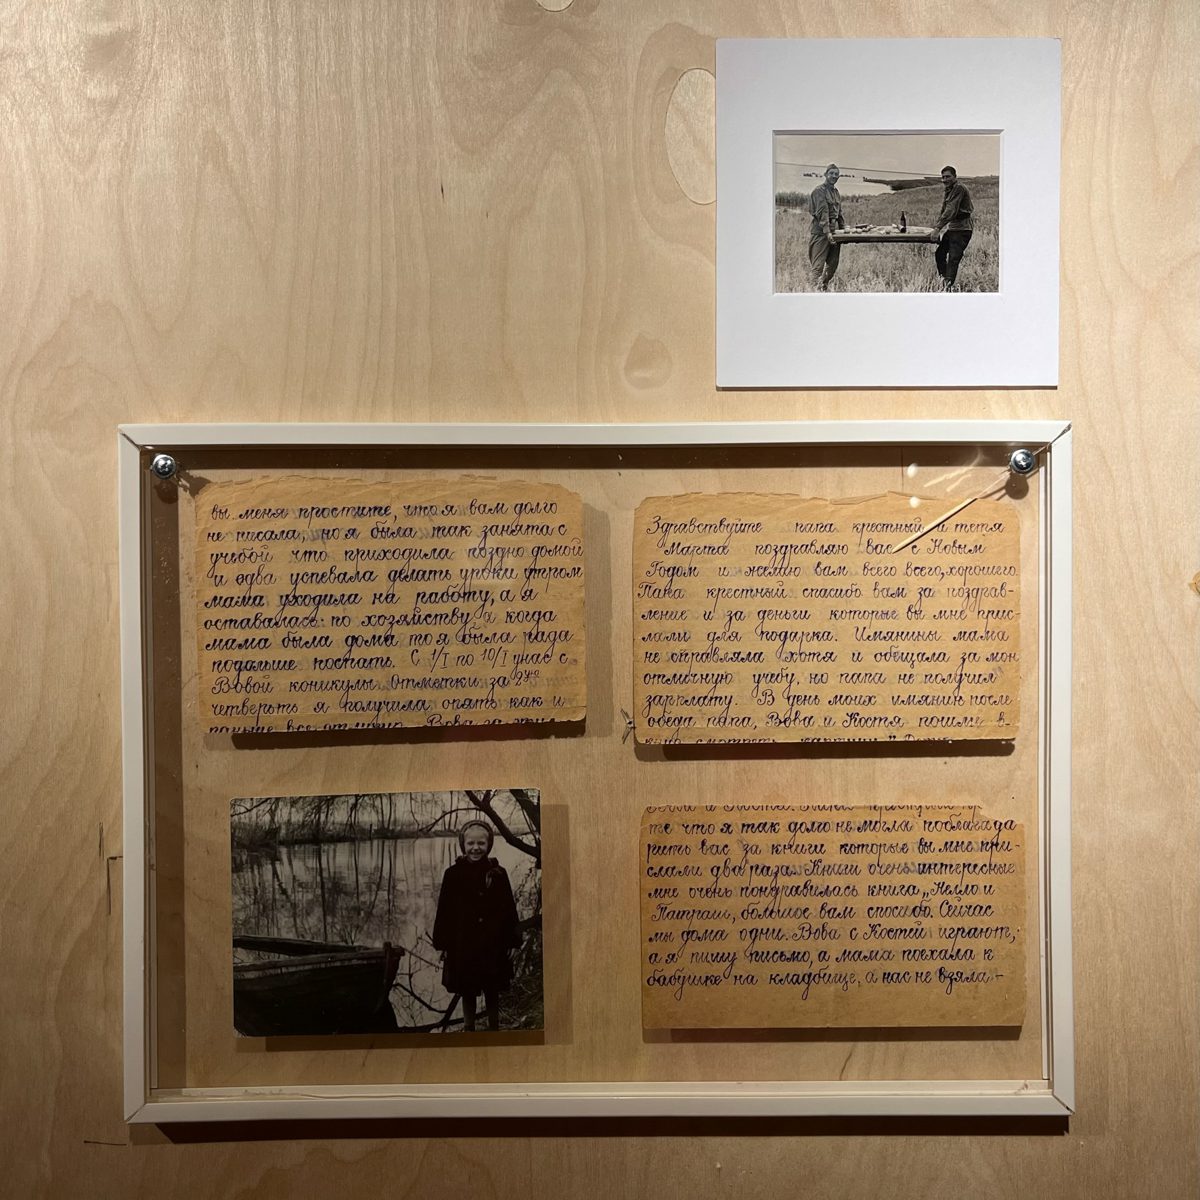 вы меня простите, что я вам долго
не писала, но я была так занята с
учебой что приходила поздно домой
и одва успевала делать уроки утром
мама уходила на работу, а я
оставалась по хозяйству, а когда
мама была дома то я была рада
подольше поспать. С 1/I по 10/I у нас с
Вовой коникулы. Отметки за 2ую
четверть я получила опять как и
раньше все отлично. Вова
Здравствуйте папа крестный и тетя
Марта поздравляю вас с Новым
Годом и желаю вам всего всего, хорошего.
Папа крестный спасибо вам за поздрав-
ление и за деньги которые вы мне прис-
лали для подарка. Имянины мама
не справляла хотя и обещала за мою
отличную учебу, но папа не получил
зарплату. В день моих имянин после
обеда папа, Вова и Костя пошли в-
кино смотреть картину
те что я так долго не могла поблагада
рить вас за книги которые вы мне при-
слали два раза. Книги очень интересные
мне очень пондравилась книга „Нелло и
Патраш, большое вам спосибо. Сейчас
мы дома одни. Вова с Костей играют,
а я пишу письмо, а мама поехала к
бабушке на кладбище, а нас не взяла -